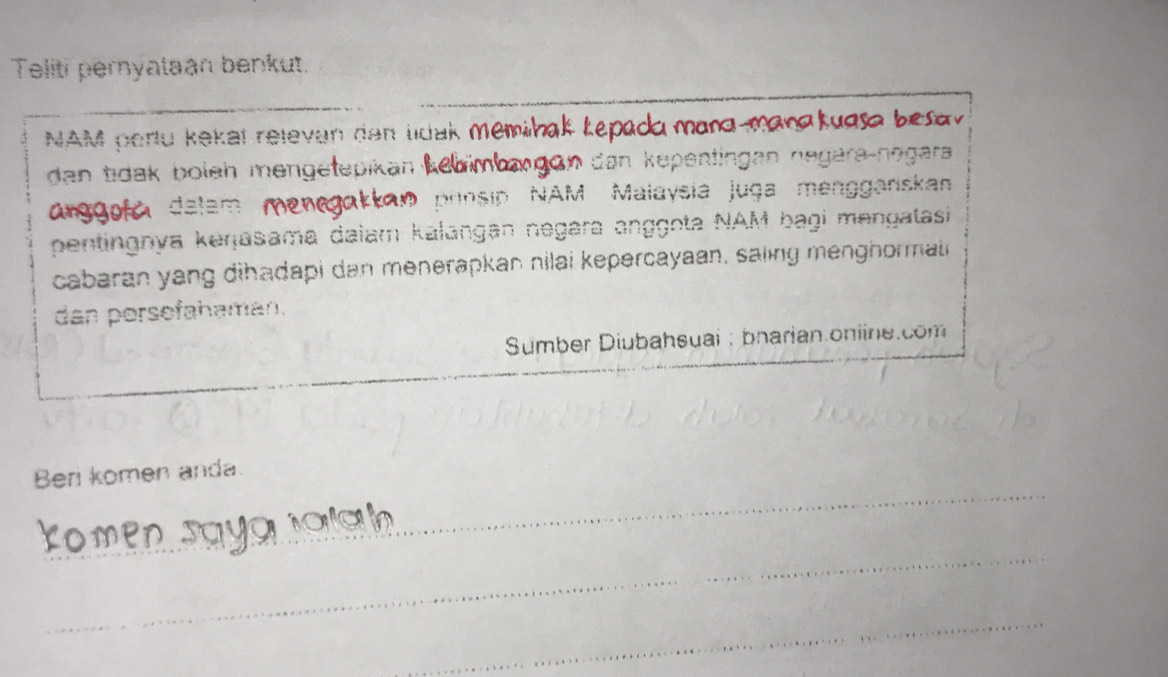 Teliti pernyataan berikut.
NAM perlu kekal relevan dan tidak memihak kepada mana-mana kuasa besar
dan tidak boleh mengetepikan kebimbangan dan kepentingan negara-negara
anggota dalam menegakkan prinsip NAM Malaysia juga menggariskan
pentingnya kerjasama dalam kalangan negara anggota NAM bagi mengatasi
cabaran yang dihadapi dan menerapkan nilai kepercayaan, saling menghormati
dan persefahaman.
Sumber Diubahsuai : bharian.online.com
Beri komen anda.
Komen saya ialah